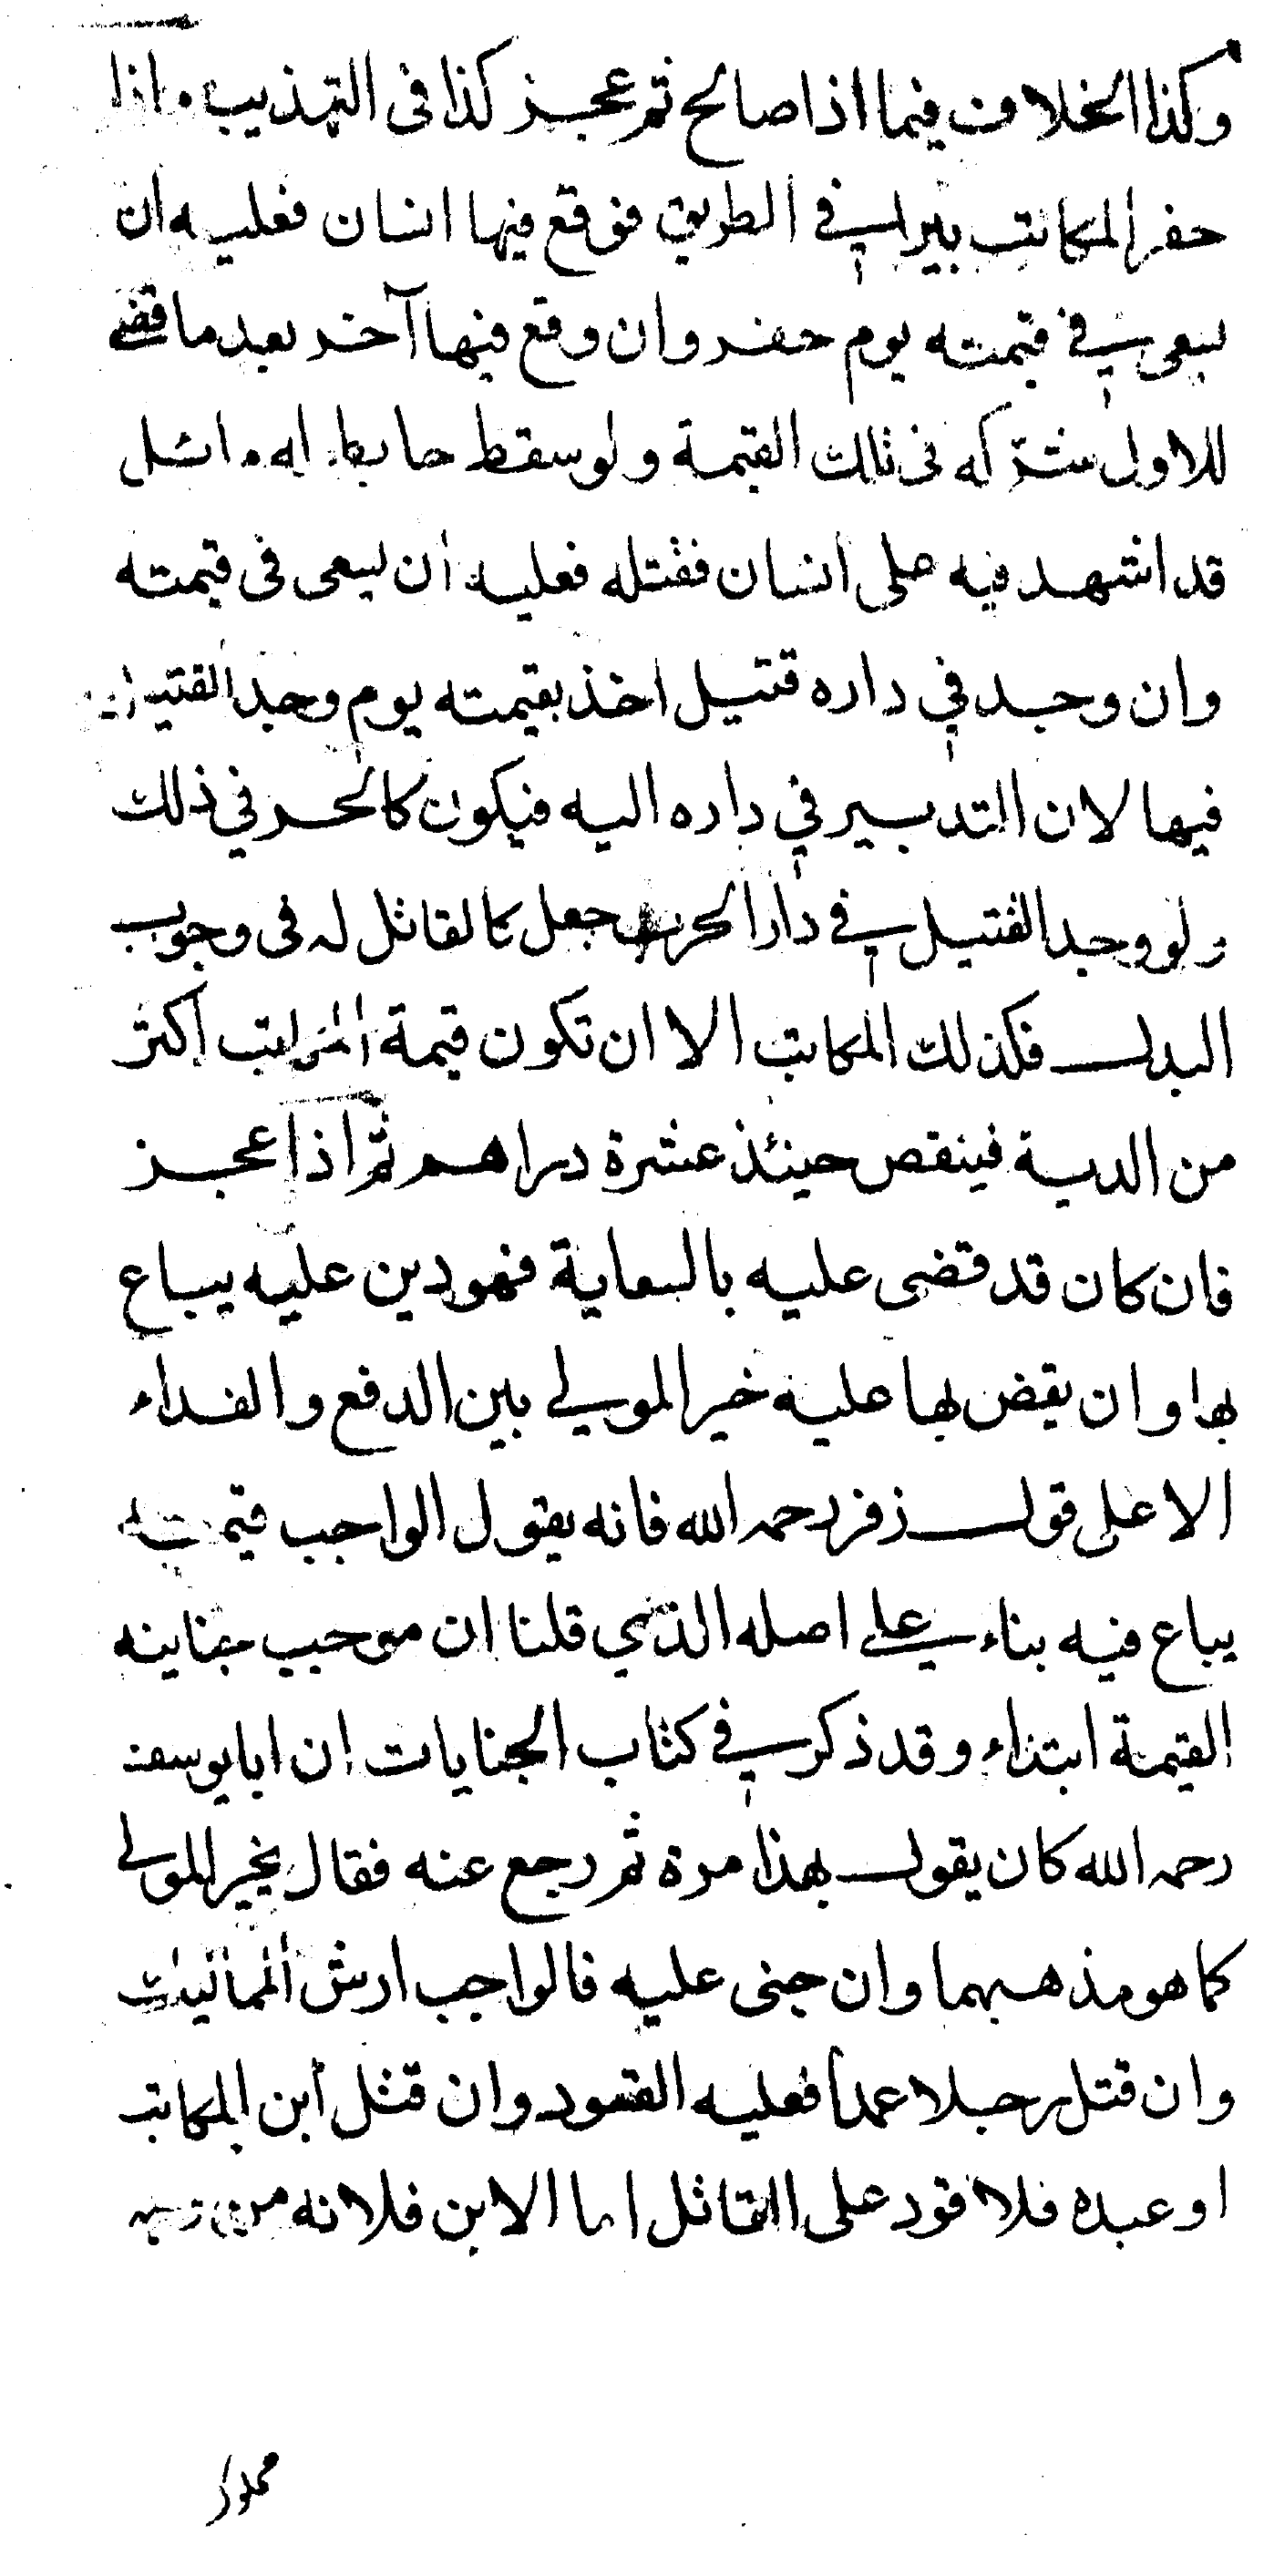 وكذا الخلاف فيما اذا صالح ثم عجز كذا في التهذيب واذا
حفر المكاتب بيرا في الطريق فوقع فيها انسان فعليه ان
يسعى في قيمته يوم حفر وان وقع فيها آخر بعد ما قضى
للاول شركه في تلك القيمة ولو سقط حايط له مائل
قد اشهد فيه على انسان فقتله فعليه ان يسعى في قيمته
وان وجد في داره قتيل اخذ بقيمته يوم وجد القتيل
فيها لان التدبير في داره اليه فيكون كالحر في ذلك
ولو وجد القتيل في دار الحر جعل كالقاتل له في وجوب
البدل فكذلك المكاتب الا ان تكون قيمة المكاتب اكثر
من الدية فينقص حينئذ عشرة دراهم ثم اذا عجز
فان كان قد قضى عليه بالسعاية فهو دين عليه يباع
بها وان يقض بها عليه خير المولى بين الدفع والفداء
الا على قول زفر رحمه الله فانه يقول الواجب قيمته
يباع فيه بناء على اصله الذي قلنا ان موجب جنايته
القيمة ابتداء وقد ذكر في كتاب الجنايات ان ابا يوسف
رحمه الله كان يقول بهذا مرة ثم رجع عنه فقال يخير المولى
كما هو مذهبهما وان جنى عليه فالواجب ارش المماليك
وان قتل رجلا عمدا فعليه القود وان قتل ابن المكاتب
او عبده فلا قود على القاتل اما الابن فلانه من